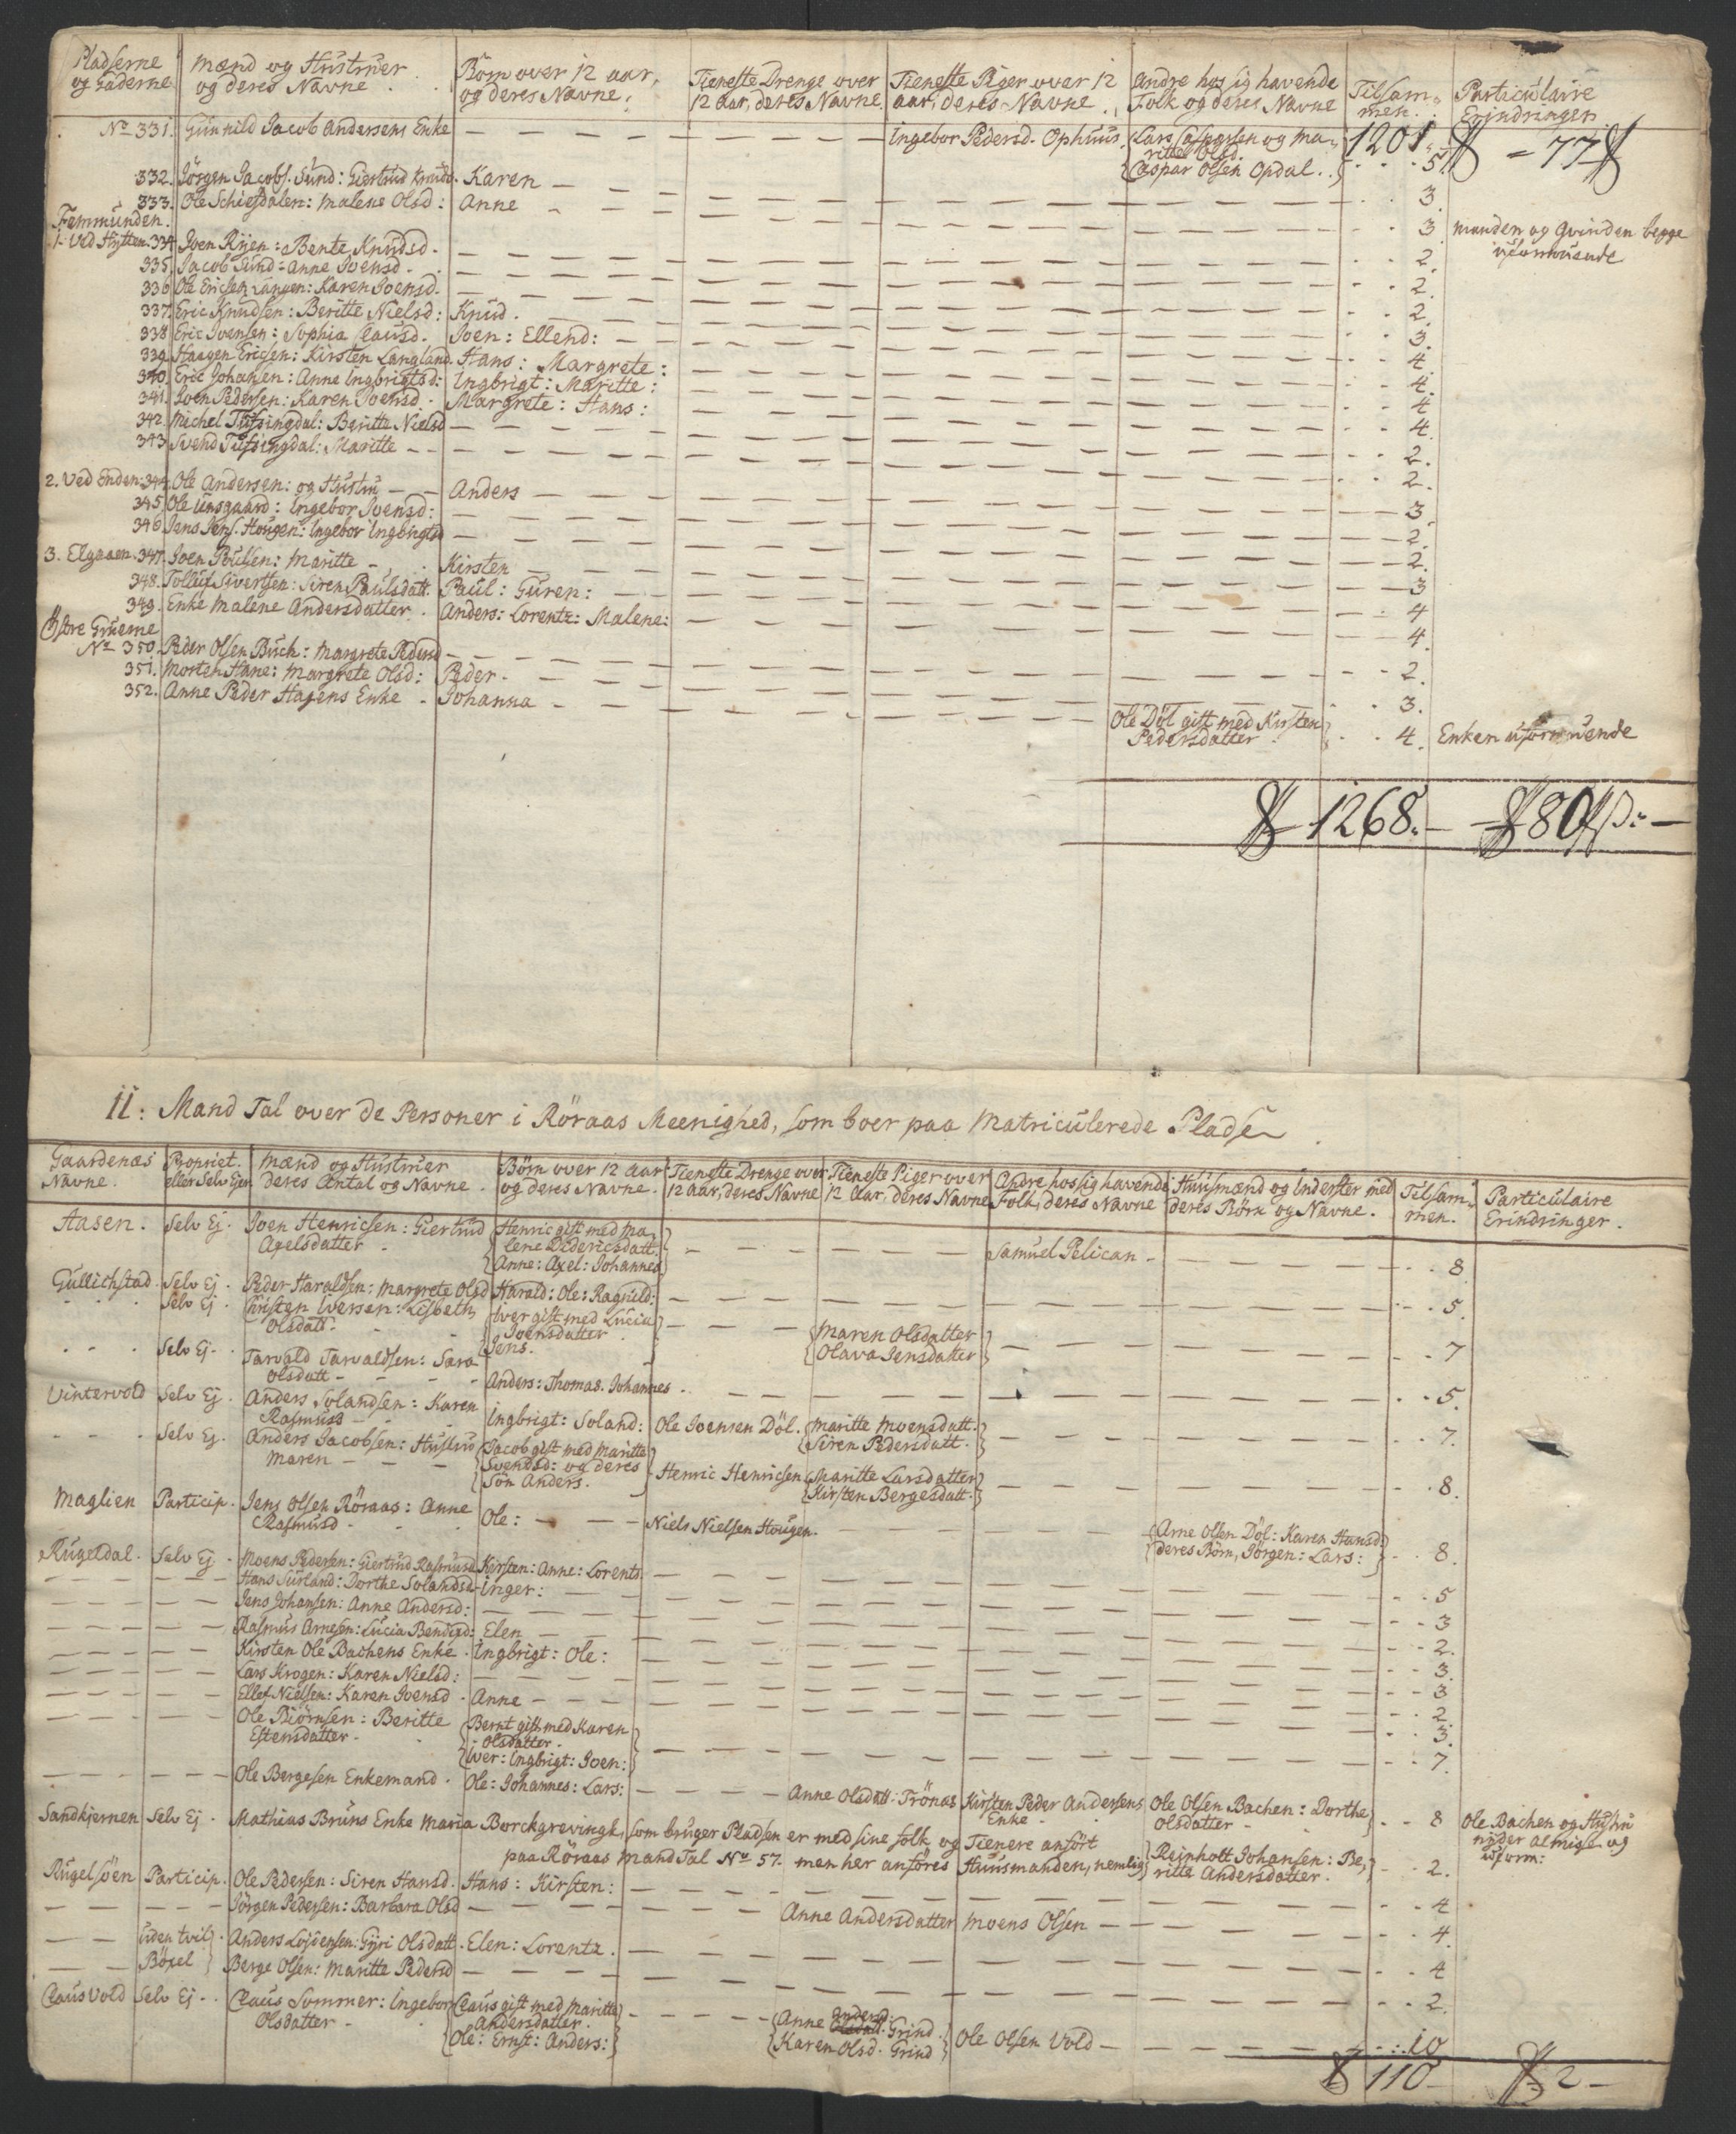 Pladserne og Gaderne | Mænd og Hustruer og deres Navne | Börn over 12 aar, og deres Navne | Tieneste Drenge over 12 Aar, deres Navne | Tieneste Piger over 12 aar, deres Navne | Andre hos sig havende Folk og deres Navne | Tilsammen | Particulaire Erindringer
1201 77
No 331. Gunhild Jacob Andersens Enke — Ingebor Pedersd. Ophuus. Lars Caspersen og Maritte Olsd. Caspar Olsen Opdal. 5.
332. Jörgen Jacobs. Sund: Giertrud Knudsd. Karen — 3.
333. Ole Schiefdalen: Malene Olsd: Anne — 3 manden og Qvinden begge uformuende
Femmunden.
1. Ved Hytten. 334 Joen Ryen: Bente Knudsd. — 2.
335. Jacob Sund: Anne Ivensd. — 2.
336 Ole Ericsen Langen: Karen Joensd. — 2.
337. Eric Knudsen: Beritte Nielsd: Knud. — 3.
338 Eric Joensen: Sophia Clausd. Joen: Ellend: — 4.
339. Haagen Ericsen: Kirsten Langland. Hans: Margrete: — 4.
340. Eric Johansen: Anne Ingbrigtsd: Ingbrigt: Maritte: — 4
341. Joen Pedersen: Karen Joensd. Margrete: Hans: — 4.
342. Michel Tufsingdal: Beritte Nielsd — 2.
343 Svend Tufsingdal: Maritte — 2.
2. Ved Enden. 344. Ole Andersen: og Hustru — Anders — 3.
345. Ole Unsgaard: Ingebor Ivensd: — 2.
346 Jens Jens. Hougen: Ingebor Ingbrigtsd — 2.
3. Elgaaen. 347. Joen Poulsen: Maritte — Kirsten — 3
348. Tolluf Sivertsen: Siren Paulsdatt. Paul: Guren: — 4
349. Enke Malene Andersdatter. Anders: Lorentz: Malene: — 4.
Östre Gruerne
No 350. Peder Olsen Buch: Margrete Pedersd — 2.
351. Morten Hane: Margrete Olsd: Peder. — 3.
352. Anne Peder Hagens Enke. Johanna — Ole Döl gift med Kirsten Pedersdatter 4. Enken uformuende
1268. — 80 —
II: Mand Tal over de Personer i Röraas Meenighed, som boer paa Matriculerede Pladse
Gaardenes Navne. | Propriet. eller Selv Ejer | Mænd og Hustruer deres Antal og Navne | Börn over 12 aar og deres Navne. | Tieneste Drenge over 12 aar, deres Navne | Tieneste Piger over 12 Aar, deres Navne | Andre hos sig havende Folk, deres Navne | Huusmænd og Inderster med deres Börn og Navne. | Tilsammen. | Particulaire Erindringer.
Aasen. Selv Ej. Joen Henricsen: Giertrud Axelsdatter. Henric gift med Malene Didericsdatt. Anne: Axel: Johannes — Samuel Pelican — 8
Gullichstad. Selv Ej. Peder Haraldsen: Margrete Olsd Harald: Ole: Ragnild: — 5.
Selv Ej. Christen Iversen: Lisbeth Olsdatt. Iver gift med Lucia Joensdatter. Jens. — Maren Olsdatter Olava Jensdatter — 7
Selv Ej. Tarvald Tarvaldsen: Sara Olsdatt — Anders: Thomas. Johannes — 5.
Vintervold Selv Ej. Anders Solandsen: Karen Rasmusd — Ingbrigt: Soland: Ole Joensen Döl. Maritte Moensdatt. Siren Pedersdatt. — 7.
Selv Ej. Anders Jacobsen: Hustrue Maren — Jacob gift med Maritte Svendsd: og deres Sön Anders. Henric Henricsen Maritte Larsdatter Kirsten Bergesdatt. — 8.
Maglien Particip. Jens Olsen Röraas: Anne Rasmusd — Ole: — Niels Nielsen Hougen. — Arne Olsen Döl: Karen Hansd: deres Börn, Jörgen: Lars: 8.
Rugeldal. Selv Ej. Moens Pedersen: Giertrud Rasmusd Kirsten: Anne: Lorents — 5
Hans Surland: Dorthe Solandsd. Inger: — 3
Jens Johansen: Anne Andersd: — 2.
Rasmus Arnesen: Lucia Bendixd: Elen — 3.
Kirsten Ole Bachens Enke. Ingbrigt: Ole: — 3
Lars Krogen: Karen Nielsd: — 2.
Ellef Nielsen: Karen Joensd. Anne — 3.
Ole Biörnsen: Beritte Estensdatter. Bernt gift med Karen Olsdatter. Iver: Ingbrigt: Joen: — 7.
Ole Bergesen Enkemand. Ole: Johannes: Lars: — Anne Olsdatt: Trönæs Kirsten Peder Andersens Enke Ole Olsen Bachen: Dorthe Olsdatter 8 Ole Bachen og Hustru nyder Almisse og uform:
Sandkjernen Selv Ej. Mathias Bruns Enke Maria Borckgrevingk, som bruger Pladsen er med sine folk og Tienere anfört
paa Röraas Mand Tal No 57. men her anföres Huusmanden, nemlig Reinholt Johansen: Beritte Andersdatter. 2.
Rugelsöen Particip. Ole Pedersen: Siren Hansd. Hans: Kirsten: — 4
Jörgen Pedersen: Barbara Olsd — Anne Andersdatter Moens Olsen — 4.
uden tvil Anders Loisensen: Gyri Olsdatt. Elen: Lorentz. — 4
Böxel Berge Olsen: Maritte Pedersd — 2.
Clausvold Selv Ej. Claus Sommer: Ingebor Olsdatter. Claus gift med Maritte Andersdatter. Ole: Ernst: Anders: — Anne Andersd. Grind. Karen Olsd. Grind Ole Olsen Vold — 10
110 — 2 —